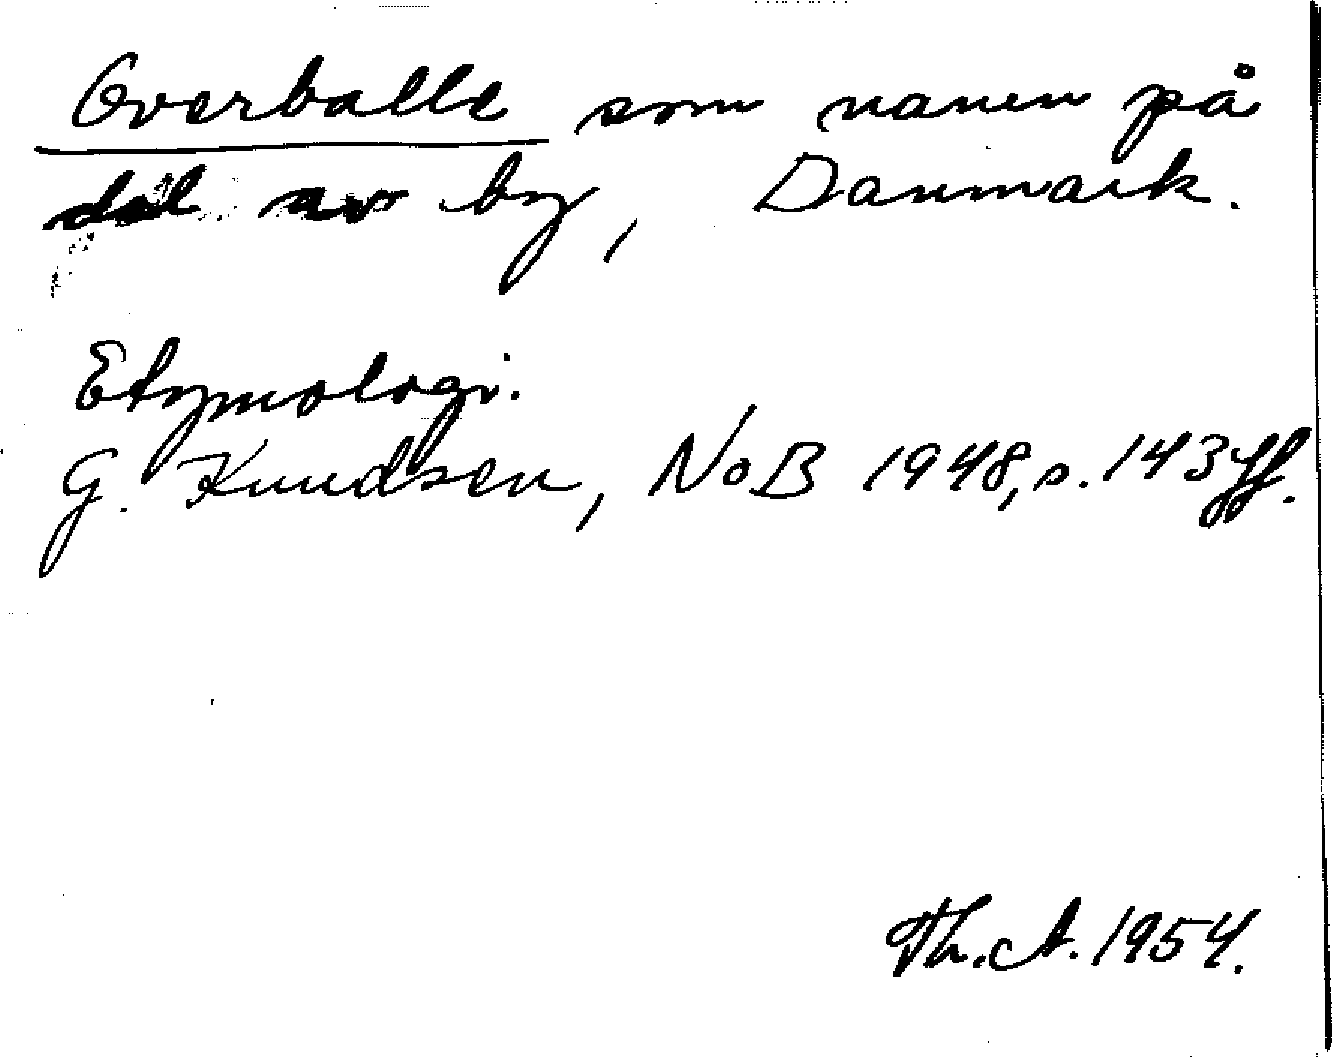 Overballe som namn på
del av by, Danmark.
Etymologi.
G. Knudsen, NoB 1948, s. 143 ff.
Th. A. 1954.